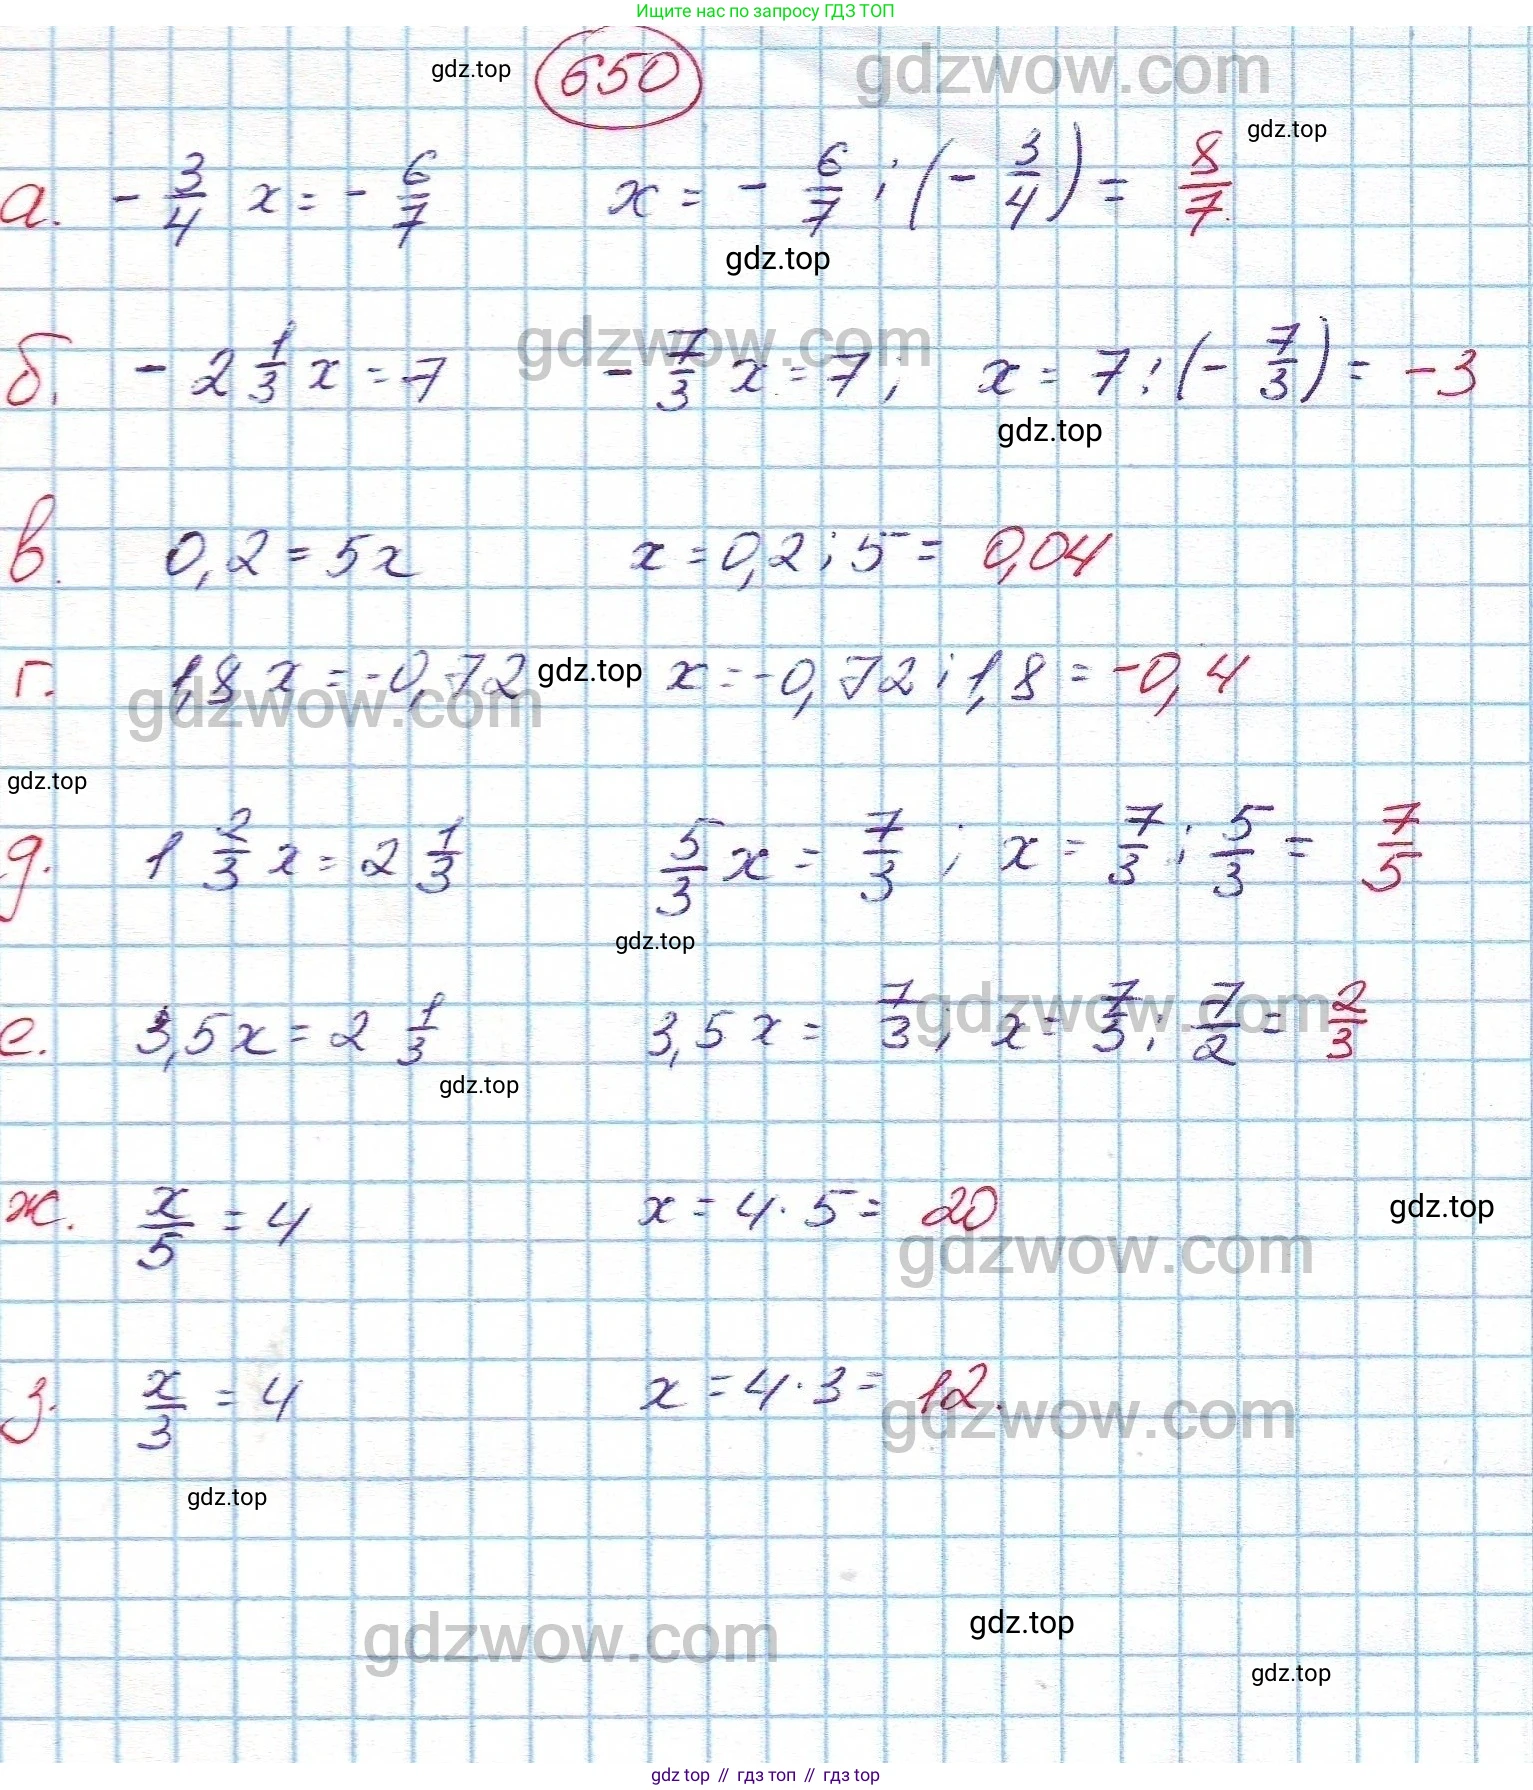 Ищите нас по запросу ГДЗ ТОП
650
gdz.top
gdzwow.com
gdz.top
а. - 3/4 x = - 6/7 x = - 6/7 : (- 3/4) = 8/7
gdz.top
gdzwow.com
б. - 2 1/3 x = 7 - 7/3 x = 7; x = 7 : (- 7/3) = -3
gdz.top
в. 0,2 = 5x x = 0,2 : 5 = 0,04
г. 1,8 x = -0,72 x = -0,72 : 1,8 = -0,4
gdz.top
gdzwow.com
gdz.top
д. 1 2/3 x = 2 1/3 5/3 x = 7/3; x = 7/3 : 5/3 = 7/5
gdz.top
gdzwow.com
е. 3,5x = 2 1/3 3,5 x = 7/3; x = 7/3 : 7/2 = 2/3
gdz.top
ж. x/5 = 4 x = 4 · 5 = 20
gdz.top
gdzwow.com
з. x/3 = 4 x = 4 · 3 = 12.
gdzwow.com
gdz.top
gdzwow.com
gdz.top
gdz.top
gdz top // гдз топ // гдз top